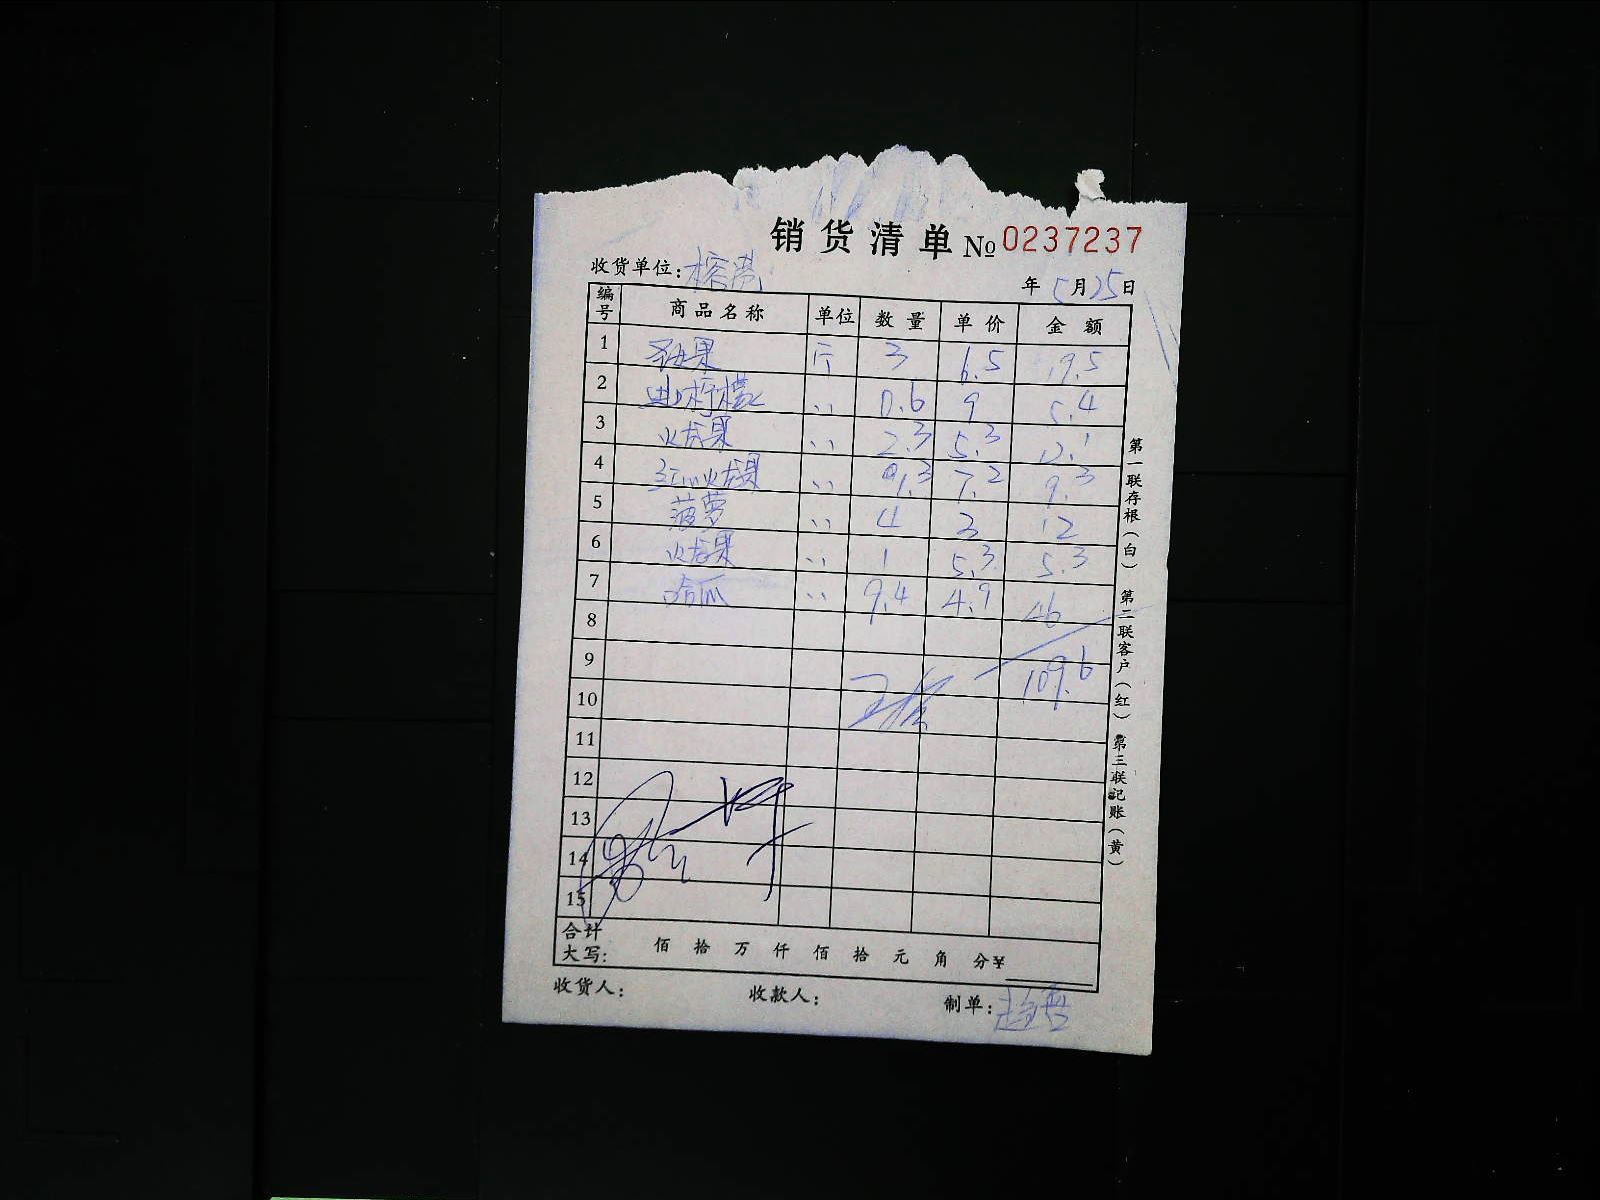 销货清单 № 0237237
收货单位: 年 5月25日
编号 商品名称 单位 数量 单价 金额
1 圣女果 斤 3 6.5 19.5
2 柠檬 〃 0.6 9 5.4
3 火龙果 〃 2.3 5.3 12.1
4 红心火龙果 〃 1.3 7.2 9.3
5 菠萝 〃 4 3 12
6 火龙果 〃 1 5.3 5.3
7 哈瓜 〃 9.4 4.9 46
8
9 109.6
10
11
12
13
14
15
合计
大写: 佰 拾 万 仟 佰 拾 元 角 分¥
收货人: 收款人: 制单:
第一联存根(白) 第二联客户(红) 第三联记账(黄)